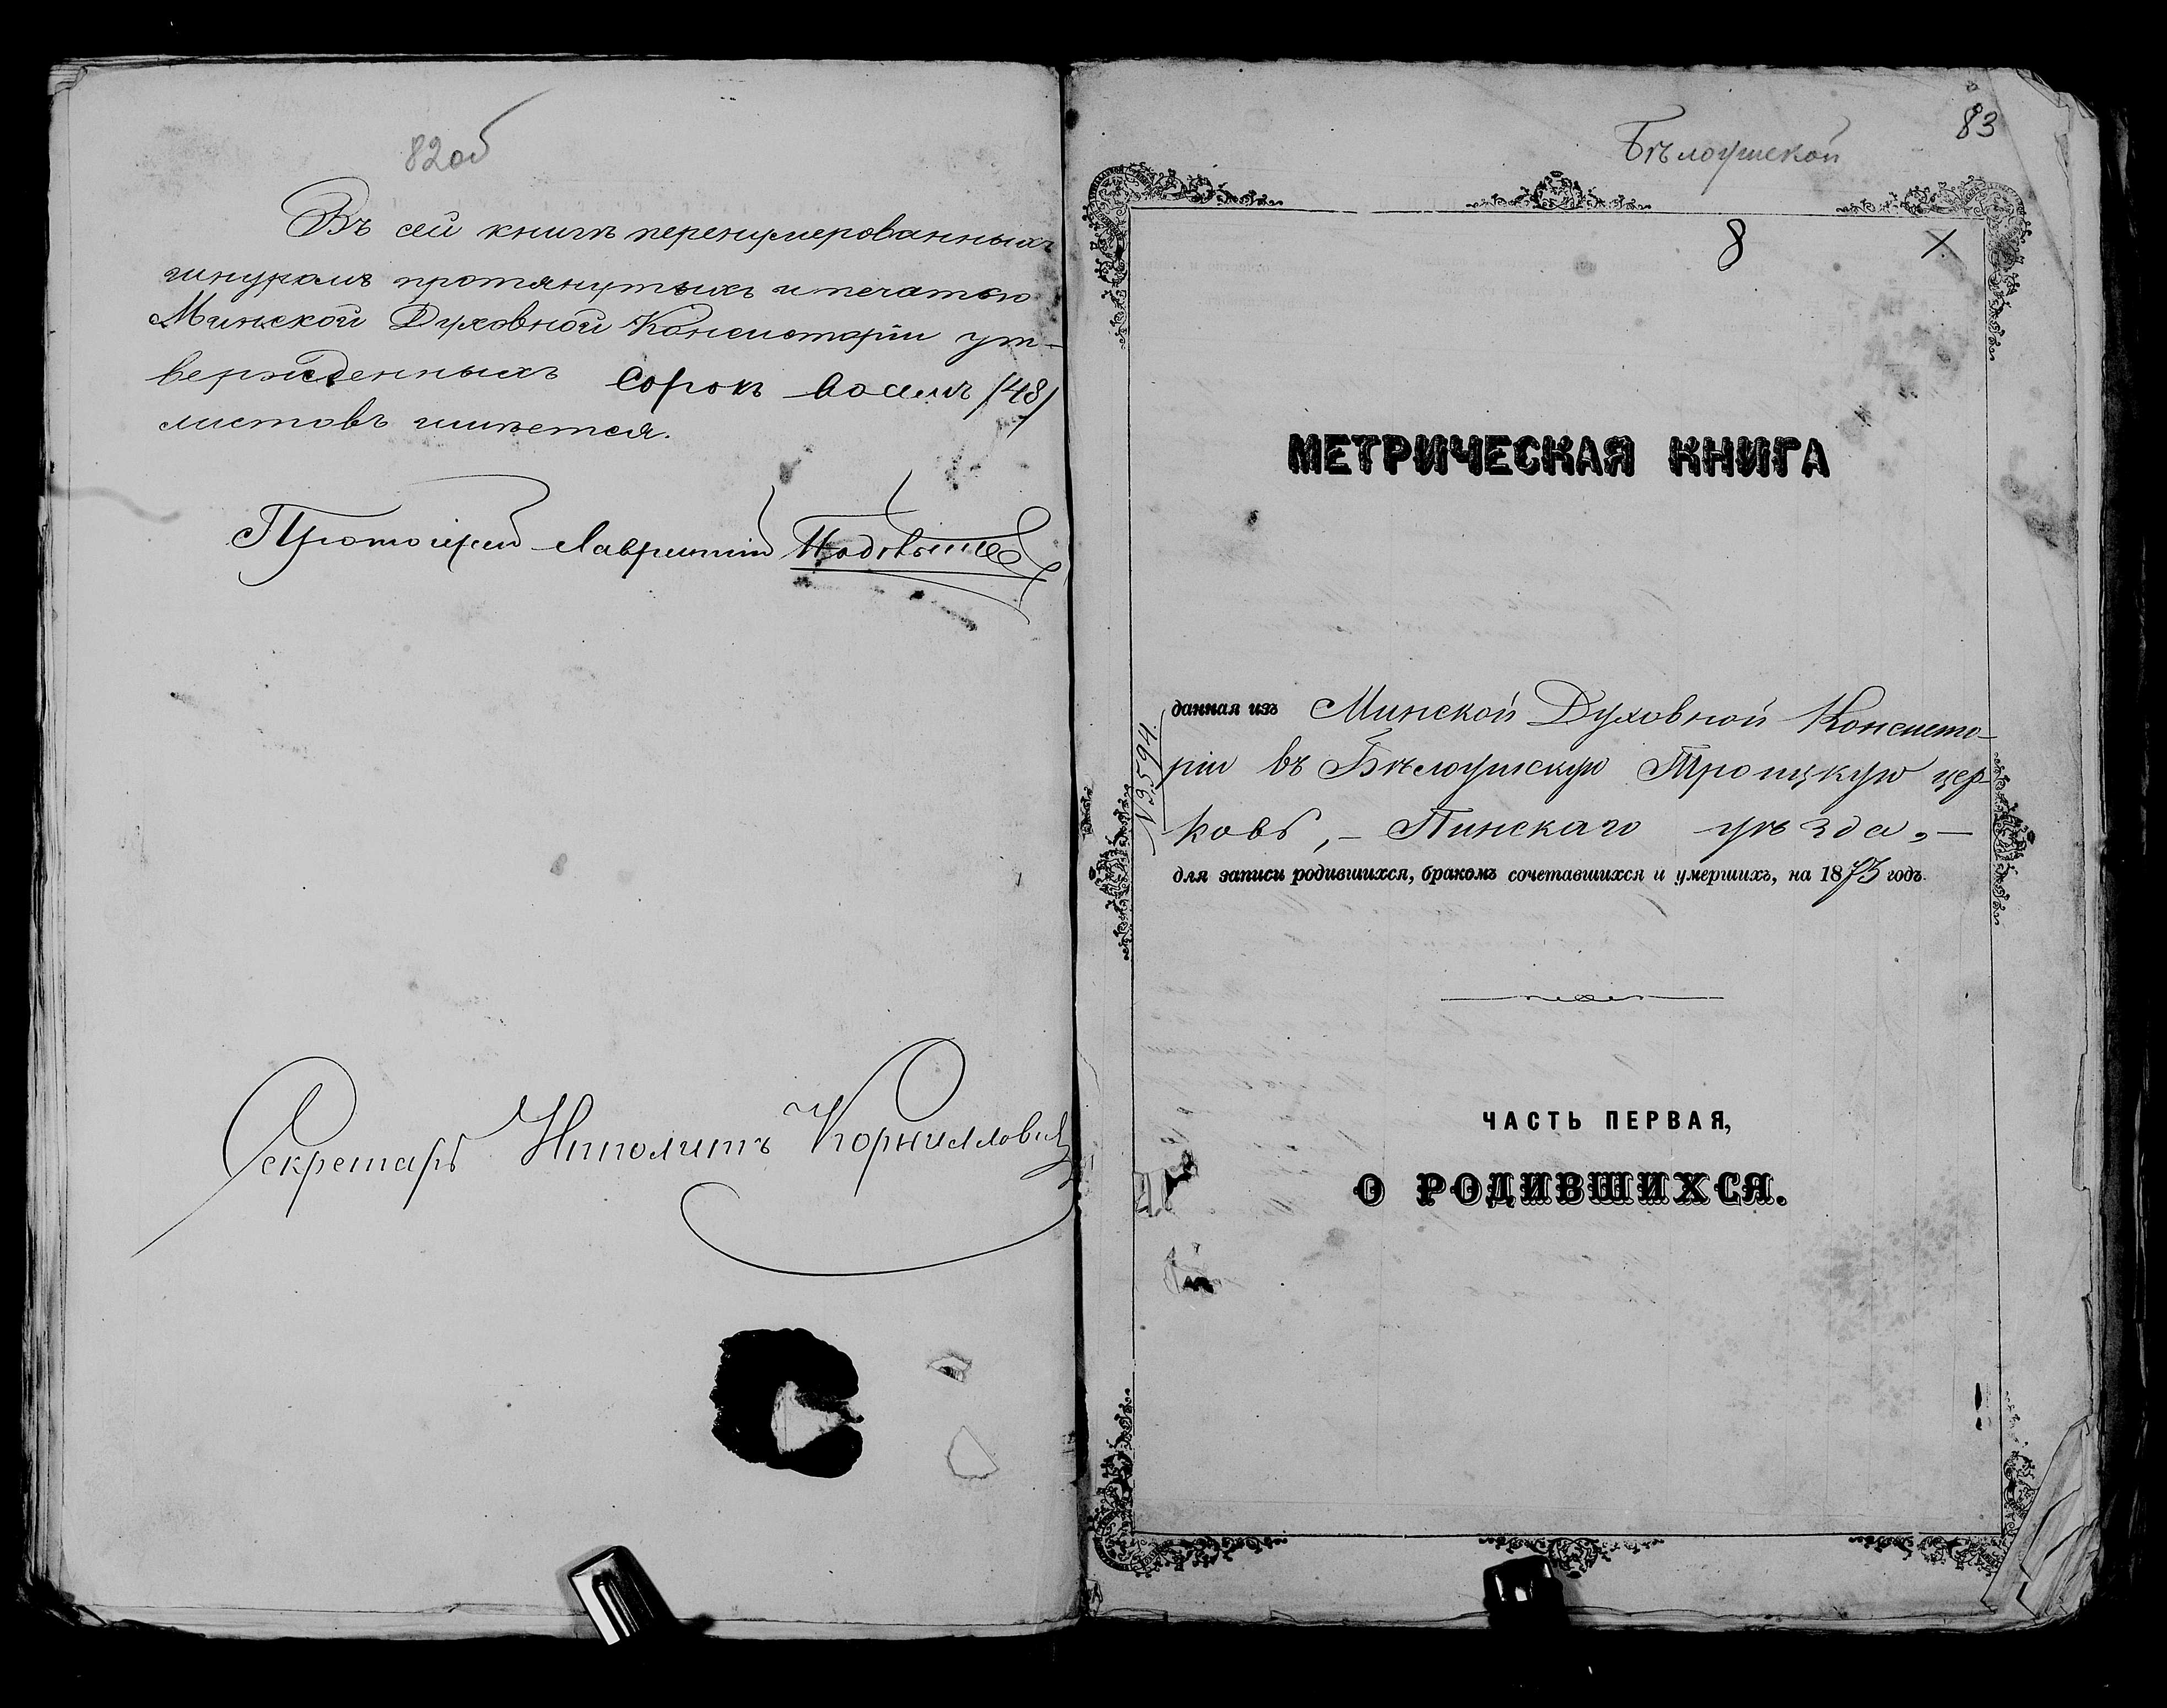 82 об
Въ сей книгѣ перенумерованныхъ
шнуромъ протянутыхъ и печатью
Минской Духовной Консисторіи ут-
вержденныхъ сорокъ восемь /48/
листовъ имѣется.
Протоіерей Лаврентій
Секретарь Ипполитъ Корниллович
83
Бѣлоушской
8 X
МЕТРИЧЕСКАЯ КНИГА
№ 9,594.
данная изъ Минской Духовной Консисто-
ріи въ Бѣлоушскую Троицкую цер-
ковь, – Пинскаго уѣзда, –
для записи родившихся, бракомъ сочетавшихся и умершихъ, на 1873 годъ.
ЧАСТЬ ПЕРВАЯ,
О РОДИВШИХСЯ.